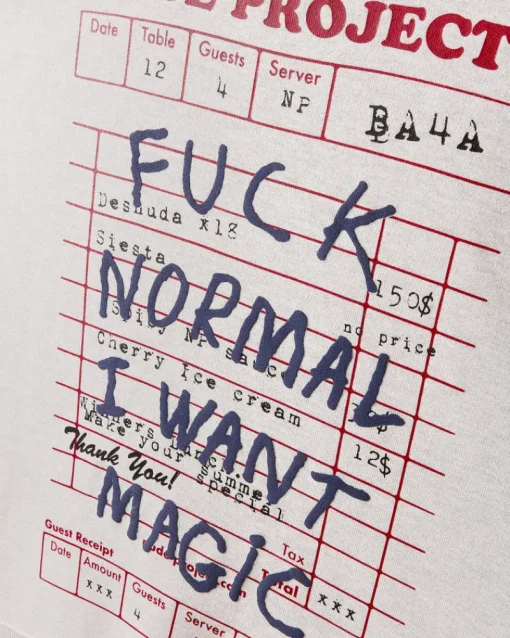 PROJECT
Date Table Guests Server
12 4 NP BA4A
FUCK
Desnuda x18 150$
Siesta no price
NORMAL
Spicy NP sauce
Cherry ice cream 12$
I WANT
Winners
Make your summer
special
Thank You!
MAGIC
Tax
Guest Receipt
Total xxx
Date Amount Guests Server
xxx 4